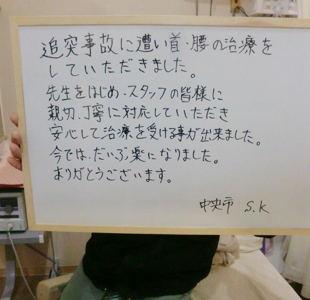 追突事故に遭い首・腰の治療を
していただきました。
先生をはじめ、スタッフの皆様に
親切、丁寧に対応していただき
安心して治療を受ける事が出来ました。
今では、だいぶ楽になりました。
ありがとうございます。
中央市 S.K